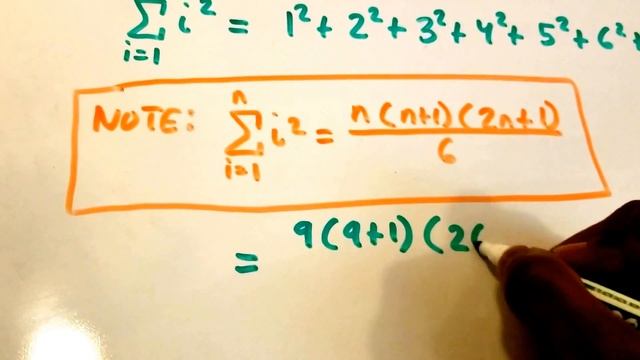 ∑ i² = 1² + 2² + 3² + 4² + 5² + 6² +
i=1
NOTE: n∑i=1 i² = n(n+1)(2n+1)/6
= 9(9+1)(2(